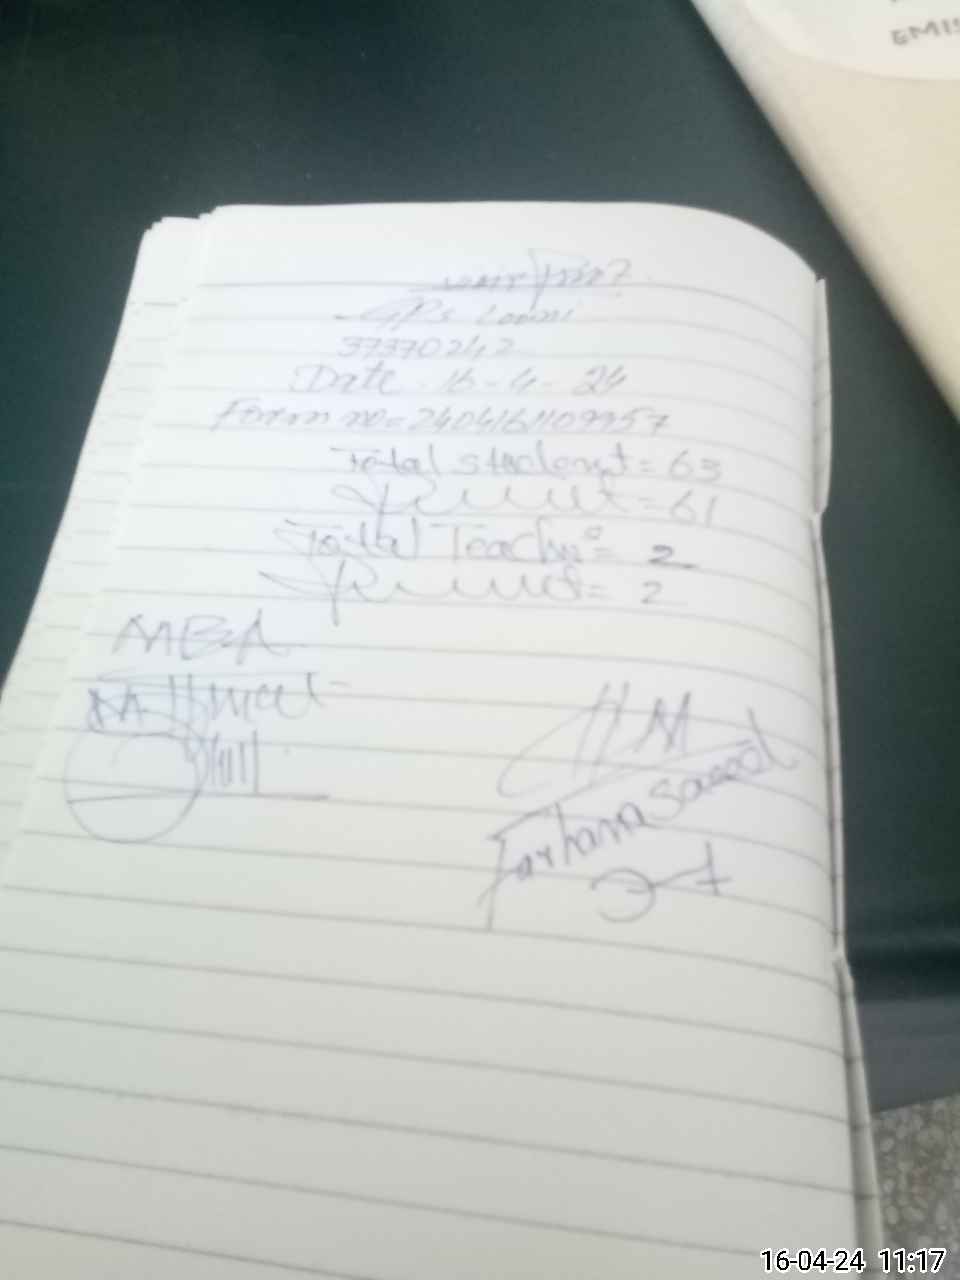 EMIS
GPS
37370242
Date - 16-4-24
Form no = 2404161109957
Total student = 63
Present = 61
Total Teacher = 2
Present = 2
MEA
HM
Farhan Saeed
16-04-24 11:17